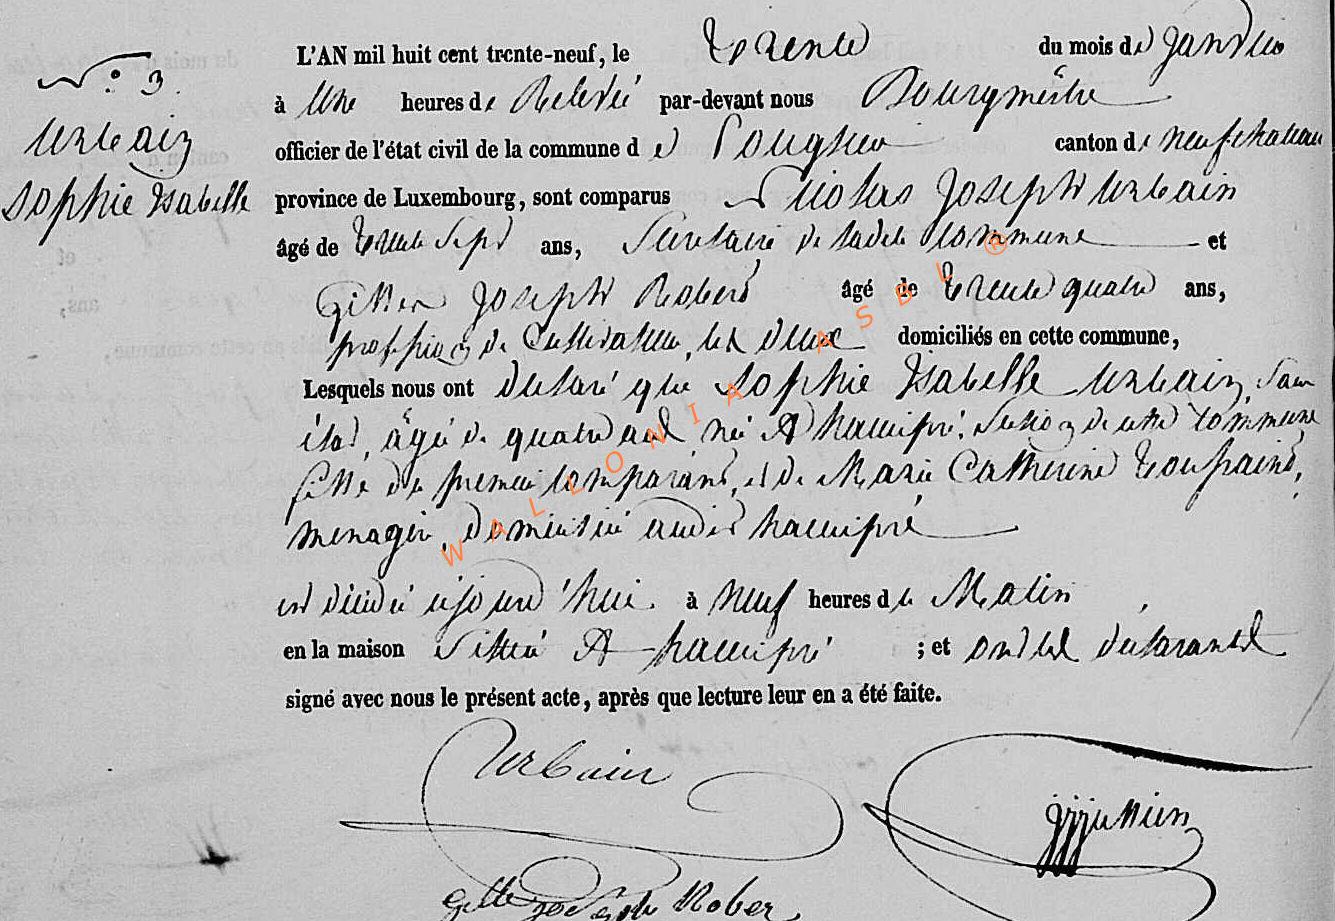 N.° 3.
Urbain
Sophie Isabelle
L'AN mil huit cent trente-neuf, le trente du mois de Janvier
à Une heures de Relevé par-devant nous Bourgmêstre
officier de l'état civil de la commune de canton de neufchateau
province de Luxembourg, sont comparus Nicolas Joseph Urbain
âgé de trente Sept ans, Secretaire de ladite Commune et
Joseph Robert âgé de trente quatre ans,
profession de Cultivateur, les deux domiciliés en cette commune,
Lesquels nous ont declaré que Sophie Isabelle Urbain, Sans
état, âgée de quatre ans née A hamipré, Section de cette Commune
fille du premier Comparant, et de Marie Catherine Toussaint,
menagère, domiciliée audit hamipré
est décédée ajourd'hui à neuf heures du Matin
en la maison Sittué A hamipré ; et ont les déclarants
signé avec nous le présent acte, après que lecture leur en a été faite.
Urbain
Gille Joseph Rober
WALLONIA ASBL ®